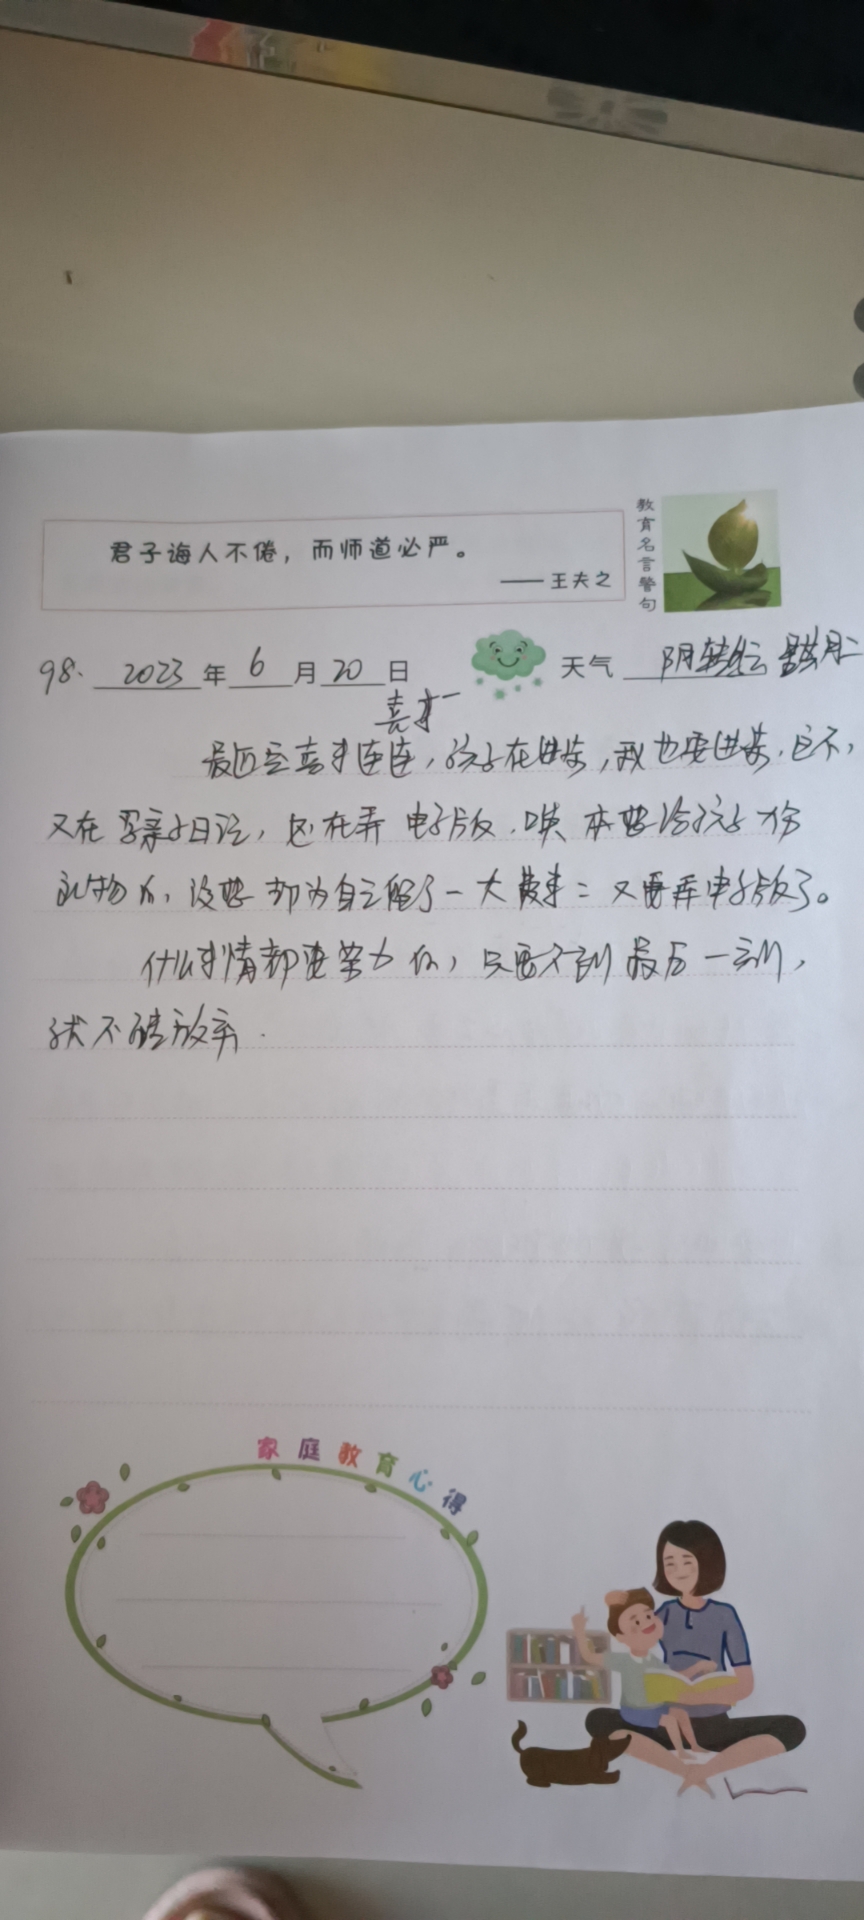 君子诲人不倦，而师道必严。
——王夫之
教育名言警句
98. 2023年6月20日 天气 阴转 月二
喜才一
最近 喜事连连，孩子在进步，我也要进步，这不，
又在写亲子日记，也在弄电子版，唉 本想给孩子一份
礼物的，没想 却为自己留了一大 又要弄电子版了。
什么事情都要努力的，只要不到最后一刻，
就不能放弃.
家庭教育心得